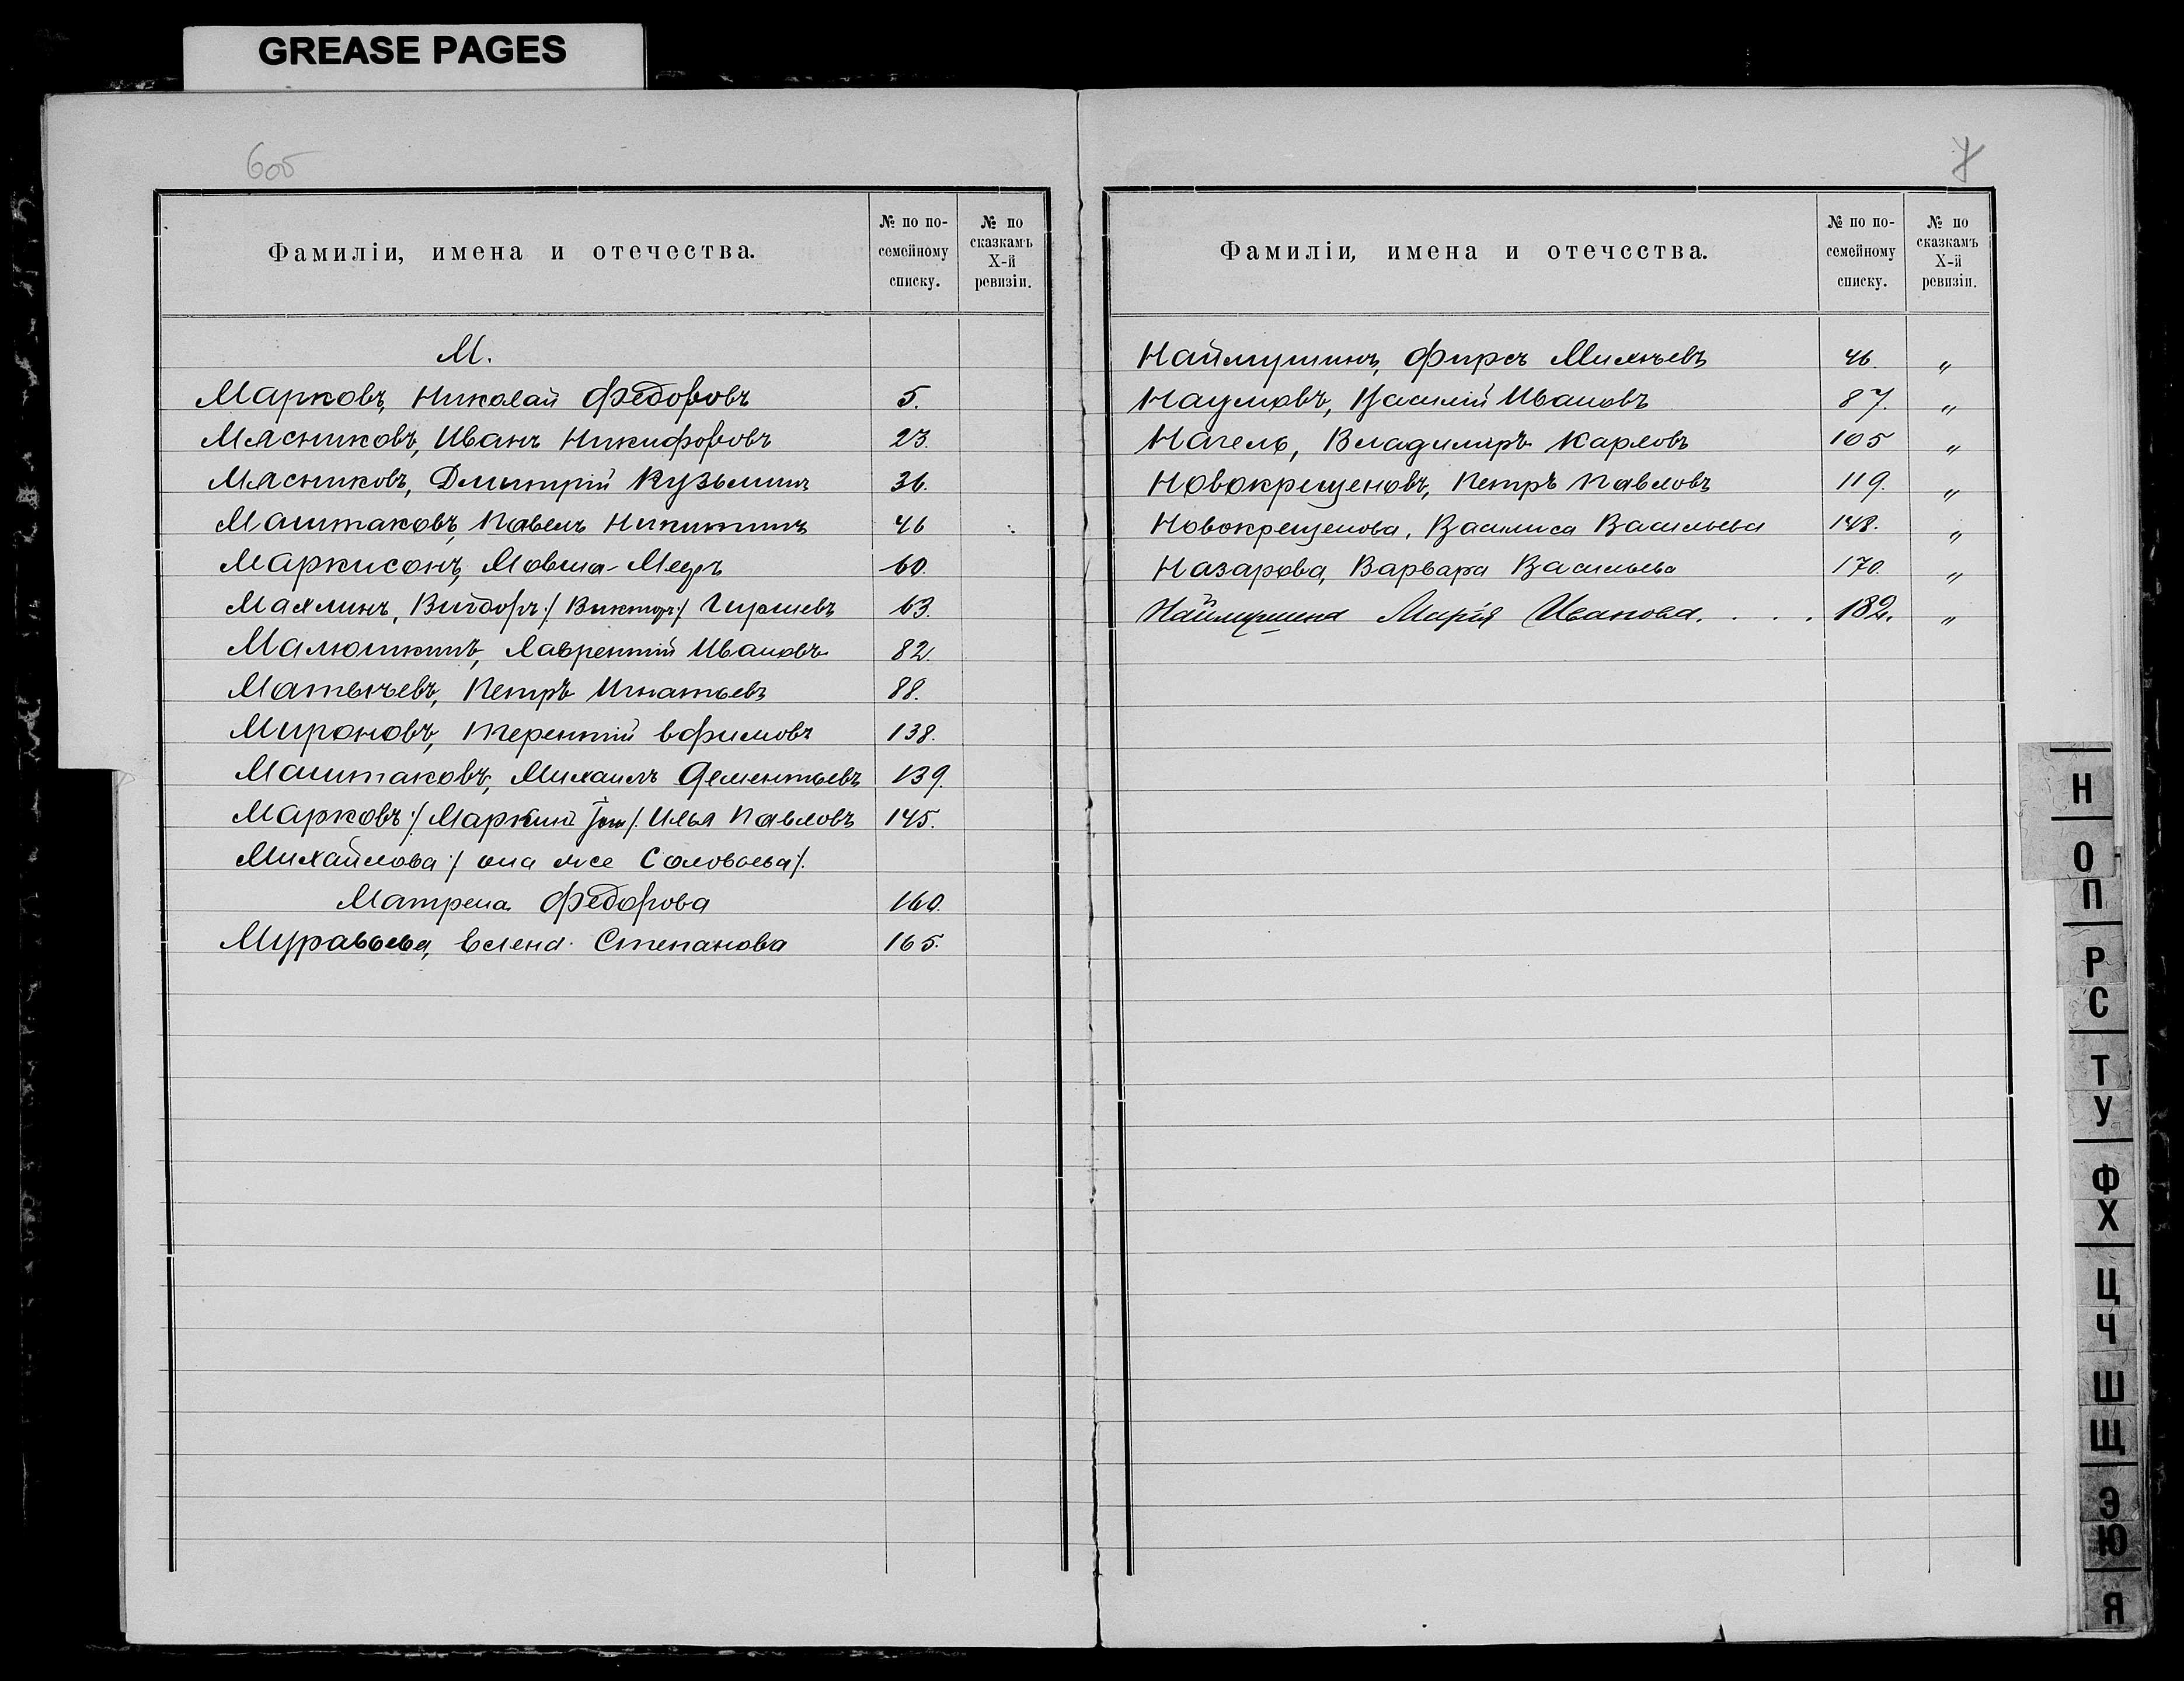 GREASE PAGES
6об
Фамиліи, имена и отечества.
№ по по-
семейному
списку.
№ по
сказкамъ
X-й
ревизіи.
М.
Марковъ, Николай Федоровъ 5.
Мясниковъ, Иванъ Никифоровъ 23.
Мясниковъ, Дмитрій Кузьминъ 36.
Маштаковъ, Павелъ Никитинъ 46
Маркисонъ, Мовша-Меер 60.
Махлинъ, Вигдоръ /Викторъ/ Гиршевъ 63.
Малюшкинъ, Лаврентій Ивановъ 82.
Матвѣевъ, Петръ Игнатьевъ 88.
Мироновъ, Терентій Ефимовъ 138.
Маштаковъ, Михаилъ Дементьевъ 139.
Марковъ /Маркинъ Илья Павловъ 145.
Михайлова /она же Соловьева/.
Матрена Федорова 160.
Муравьева, Елена Степанова 165.
7
Фамиліи, имена и отечества.
№ по по-
семейному
списку.
№ по
сказкамъ
X-й
ревизіи.
Наймушинъ, Фирсъ Михѣевъ 46. „
Наумовъ, Василій Ивановъ 87. „
Нагель, Владиміръ Карловъ 105 „
Новокрещеновъ, Петръ Павловъ 119. „
Новокрещенова, Василиса Васильева 148. „
Назарова, Варвара Васильева 170. „
Наймушина Марія Иванова. . . . 182. „
Н
О
П
Р
С
Т
У
Ф
Х
Ц
Ч
Ш
Щ
Э
Ю
Я